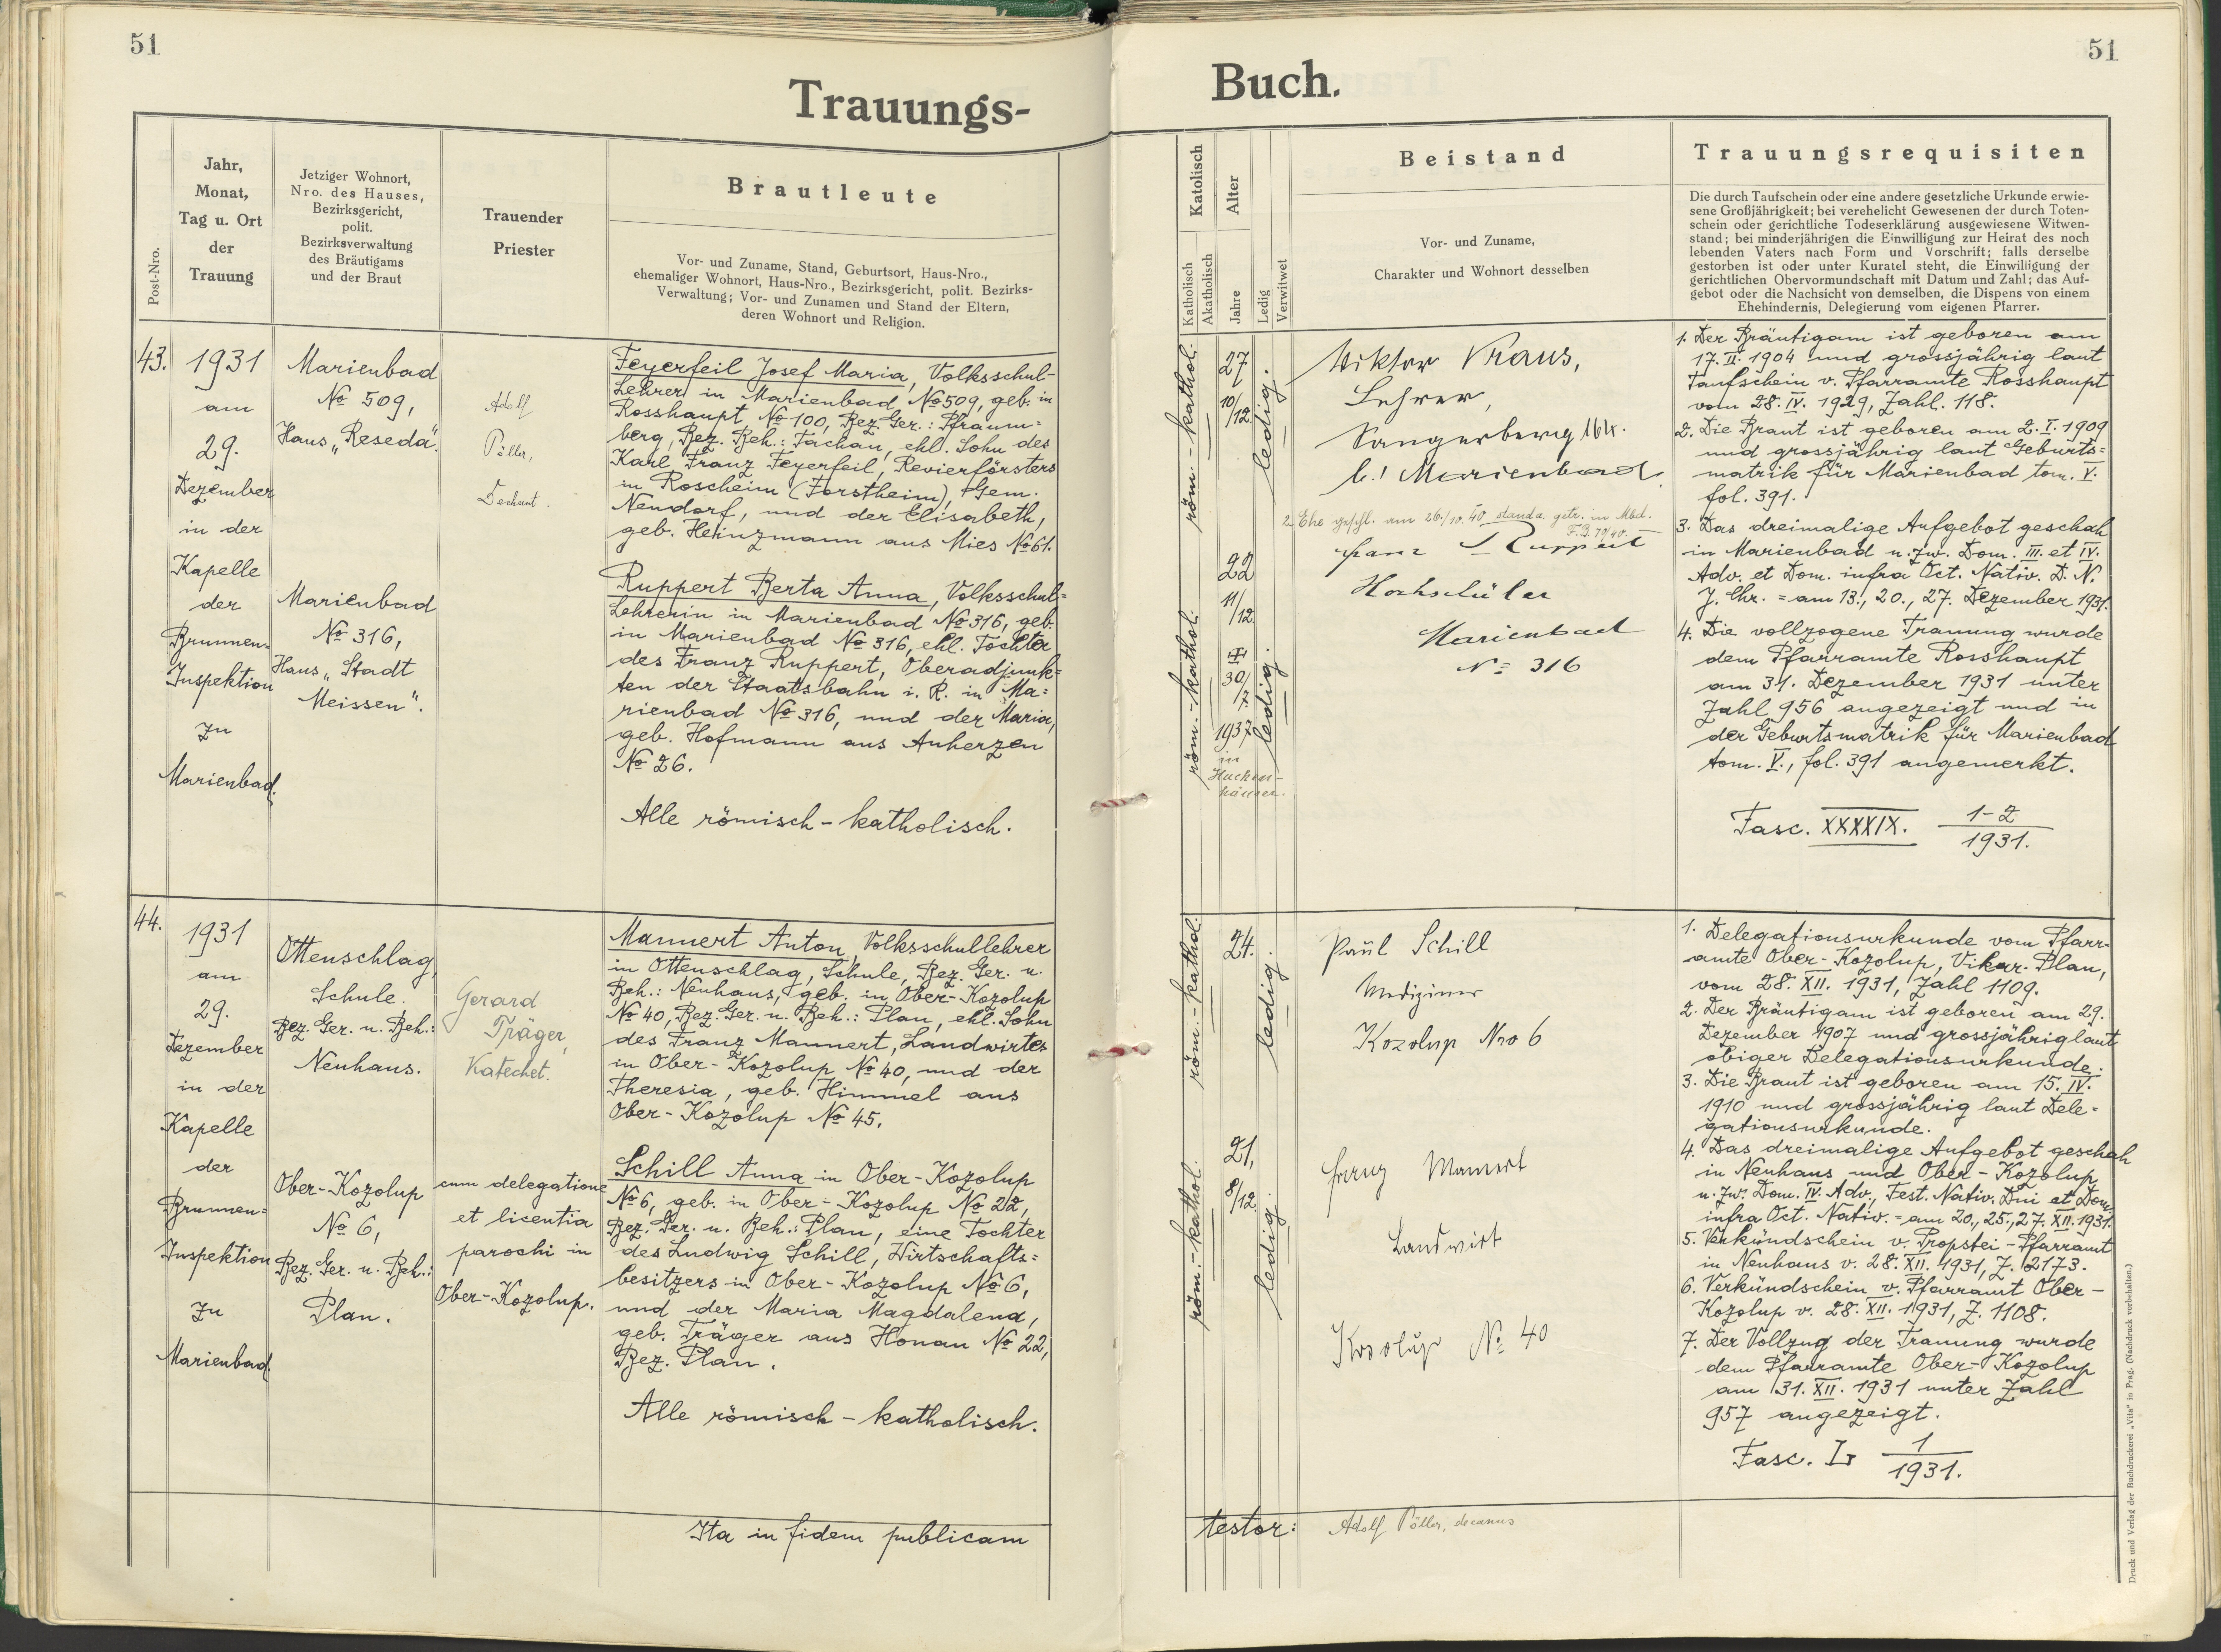 51
Trauungs-
Post-Nro.
Jahr,
Monat,
Tag u. Ort
der
Trauung
Jetziger Wohnort,
Nro. des Hauses,
Bezirksgericht,
polit.
Bezirksverwaltung
des Bräutigams
und der Braut
Trauender
Priester
Brautleute
Vor- und Zuname, Stand, Geburtsort, Haus-Nro.,
ehemaliger Wohnort, Haus-Nro., Bezirksgericht, polit. Bezirks-
Verwaltung; Vor- und Zunamen und Stand der Eltern,
deren Wohnort und Religion.
43.
1931
am
29.
Dezember
in der
Kapelle
der
Brunnen=
Inspektion
zu
Marienbad.
Marienbad
No 509,
Haus „Reseda".
Marienbad
No 316,
Haus „Stadt
Meissen".
Adolf
Pöller,
Dechant.
Feyerfeil Josef Maria, Volksschul-
Lehrer in Marienbad No 509, geb. in
Rosshaupt No 100, Bez. Ger.: Pfraum=
berg, Bez. Beh.: Tachau, ehl. Sohn des
Karl Franz Feyerfeil, Revierförsters
in Roscheim (Forstheim), Gem.
Neudorf, und der Elisabeth,
geb. Heinzmann aus Mies No 61.
Ruppert Berta Anna, Volksschul=
Lehrerin in Marienbad No 316, geb.
in Marienbad No 316, ehl. Tochter
des Franz Ruppert, Oberadjunk=
ten der Staatsbahn i. R. in Ma=
rienbad No 316, und der Maria,
geb. Hofmann aus Auherzen
No 26.
Alle römisch-katholisch.
44.
1931
am
29.
Dezember
in der
Kapelle
der
Brunnen=
Inspektion
zu
Marienbad.
Ottenschlag,
Schule.
Bez. Ger. u. Beh.:
Neuhaus.
Ober-Kozolup
No 6,
Bez. Ger. u. Beh.:
Plan.
Gerard
Träger,
Katechet.
cum delegatione
et licentia
parochi in
Ober-Kozolup.
Mannert Anton, Volksschullehrer
in Ottenschlag, Schule, Bez. Ger. u.
Beh.: Neuhaus, geb. in Ober-Kozolup
No 40, Bez. Ger. u. Beh.: Plan, ehl. Sohn
des Franz Mannert, Landwirtes
in Ober-Kozolup No 40, und der
Theresia, geb. Himmel aus
Ober-Kozolup No 45.
Schill Anna in Ober-Kozolup
No 6, geb. in Ober-Kozolup No 22,
Bez. Ger. u. Beh.: Plan, eine Tochter
des Ludwig Schill, Wirtschafts=
besitzers in Ober-Kozolup No 6,
und der Maria Magdalena,
geb. Träger aus Honau No 22,
Bez. Plan.
Alle römisch-katholisch.
Ita in fidem publicam
51
Buch.
Katolisch
Katholisch
Akatholisch
Alter
Jahre
Ledig
Verwitwet
Beistand
Vor- und Zuname,
Charakter und Wohnort desselben
Trauungsrequisiten
Die durch Taufschein oder eine andere gesetzliche Urkunde erwie-
sene Großjährigkeit; bei verehelicht Gewesenen der durch Toten-
schein oder gerichtliche Todeserklärung ausgewiesene Witwen-
stand; bei minderjährigen die Einwilligung zur Heirat des noch
lebenden Vaters nach Form und Vorschrift; falls derselbe
gestorben ist oder unter Kuratel steht, die Einwilligung der
gerichtlichen Obervormundschaft mit Datum und Zahl; das Auf-
gebot oder die Nachsicht von demselben, die Dispens von einem
Ehehindernis, Delegierung vom eigenen Pfarrer.
röm.-kathol.
27
10/12.
ledig.
Viktor Kraus,
Lehrer,
Sangerberg 164.
b. Marienbad.
2. Ehe geschl. am 26./10. 40 standa. getr. in Mbd.
F.B. 79/40.
röm.-kathol.
22
11/12.
30/
7.
1937
in
ledig.
Franz Ruppert
Hochschüler
Marienbad
No 316
1. Der Bräutigam ist geboren am
17. II. 1904 und grossjährig laut
Taufschein v. Pfarramte Rosshaupt
vom 28. IV. 1929, Zahl. 118.
2. Die Braut ist geboren am 2. I. 1909
und grossjährig laut Geburts=
matrik für Marienbad tom. V.
fol. 391.
3. Das dreimalige Aufgebot geschah
in Marienbad u. zw. Dom. III. et IV.
Adv. et Dom. infra Oct. Nativ. D. N.
J. Chr. = am 13., 20., 27. Dezember 1931.
4. Die vollzogene Trauung wurde
dem Pfarramte Rosshaupt
am 31. Dezember 1931 unter
Zahl 956 angezeigt und in
der Geburtsmatrik für Marienbad
tom. V., fol. 391 angemerkt.
Fasc. XXXXIX. 1-2/1931.
röm.-kathol.
24.
ledig.
Paul Schill
Mediziner
Kozolup Nro 6
röm.-kathol.
21,
8/12.
ledig.
Franz Mannert
Landwirt
Kosolup No 40
1. Delegationsurkunde vom Pfarr-
amte Ober-Kozolup, Vikar. Plan,
vom 28. XII. 1931, Zahl 1109.
2. Der Bräutigam ist geboren am 29.
Dezember 1907 und grossjährig laut
obiger Delegationsurkunde.
3. Die Braut ist geboren am 15. IV.
1910 und grossjährig laut Dele=
gationsurkunde.
4. Das dreimalige Aufgebot geschah
in Neuhaus und Ober-Kozolup
u. zw. Dom. IV. Adv., Fest. Nativ. Dni et Dom.
infra Oct. Nativ. = am 20., 25., 27. XII. 1931.
5. Verkündschein v. Propstei-Pfarramt
in Neuhaus v. 28. XII. 1931, Z. 2173.
6. Verkündschein v. Pfarramt Ober-
Kozolup v. 28. XII. 1931, Z. 1108.
7. Der Vollzug der Trauung wurde
dem Pfarramte Ober-Kozolup
am 31. XII. 1931 unter Zahl
957 angezeigt.
Fasc. L 1/1931.
testor:
Adolf Pöller, decanus
Druck und Verlag der Buchdruckerei „Vita" in Prag. (Nachdruck vorbehalten.)